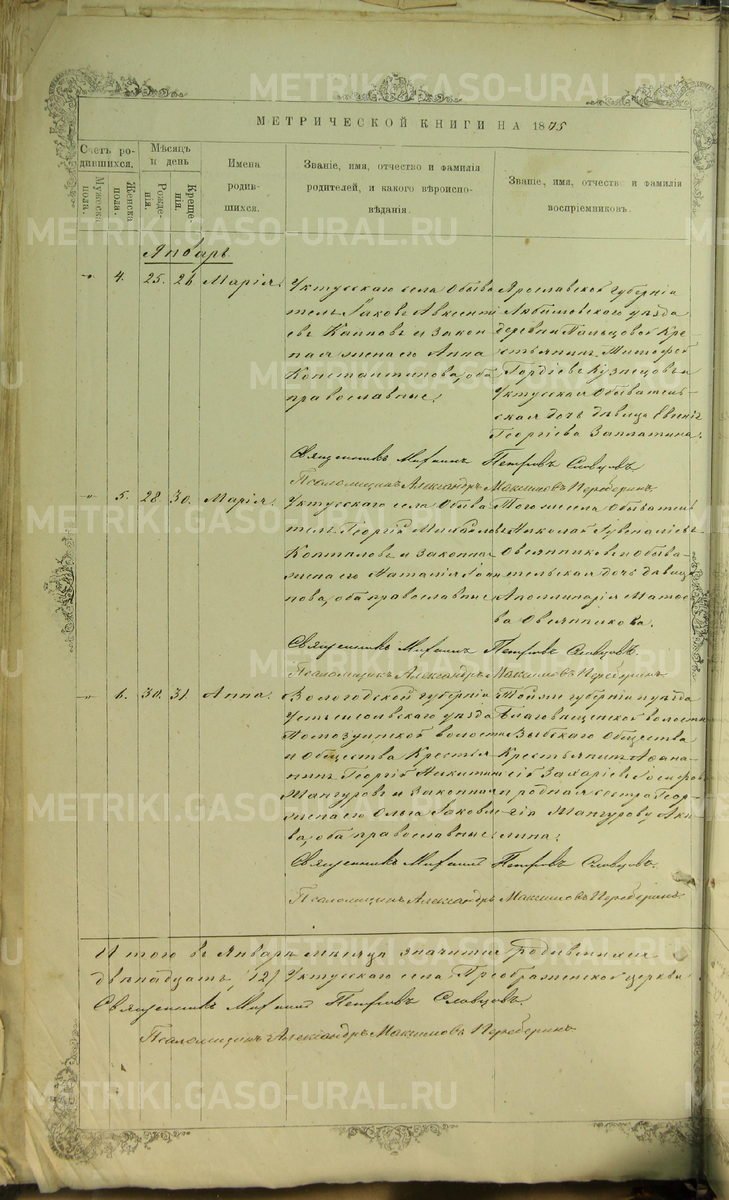 МЕТРИЧЕСКОЙ КНИГИ НА 1875
Счетъ родившихся.
Мужеска пола.
Женска пола.
Мѣсяцъ и день
Рожденія.
Крещенія.
Имена родившихся.
Званіе, имя, отчество и фамилія
родителей, и какого вѣроиспо-
вѣданія.
Званіе, имя, отчество и фамилія
воспріемниковъ.
Январь
4. 25. 26 Марія.
Уктусскаго села Обыва
тель Іаковъ Авксенті
евъ и закон
ная жена его Анна
Константинова, оба
православные.
Ярославской губерніи
Любимовскаго уѣзда
деревни Кре-
стьянинъ
Гордіевъ Кузнецовъ и
Уктусская Обыватель-
ская дочь дѣвица Евгенія
Георгіева
Священникъ Михаилъ Петровъ Словцовъ
Псаломщикъ Александръ Максимовъ
5. 28. 30. Марія.
Уктусскаго села Обыва
тель Георгій Михайловъ
и законная
жена его Наталія Іоан
нова, оба православные
Того же села Обыватель
Николай Іувеналіевъ
Овсянниковъ и обыва-
тельская дочь дѣвица
Апполинарія Матвѣе
ва Овсянникова.
Священникъ Михаилъ Петровъ Словцовъ.
Псаломщикъ Александръ Максимовъ
6. 30. 31. Анна.
Вологодской губерніи
Устьсысольскаго уѣзда
Помоздинской волости
и Общества Крестья
нинъ Георгій Никитинъ
Мангуровъ и законная
жена его Ольга Іаковле
ва, оба православные.
Той же губерніи и уѣзда
Благовѣщенской волости
Общества
Крестьянинъ Афана-
сій Захаріевъ
и родная сестра Геор-
гія Мангурову
Священникъ Михаилъ Петровъ Словцовъ.
Псаломщикъ Александръ Максимовъ
Итого въ Январѣ мѣсяцѣ значится родившихся
двѣнадцать /12/ Уктусскаго села Преображенской церкви
Священникъ Михаилъ Петровъ Словцовъ
Псаломщикъ Александръ Максимовъ
METRIKI.GASO-URAL.RU